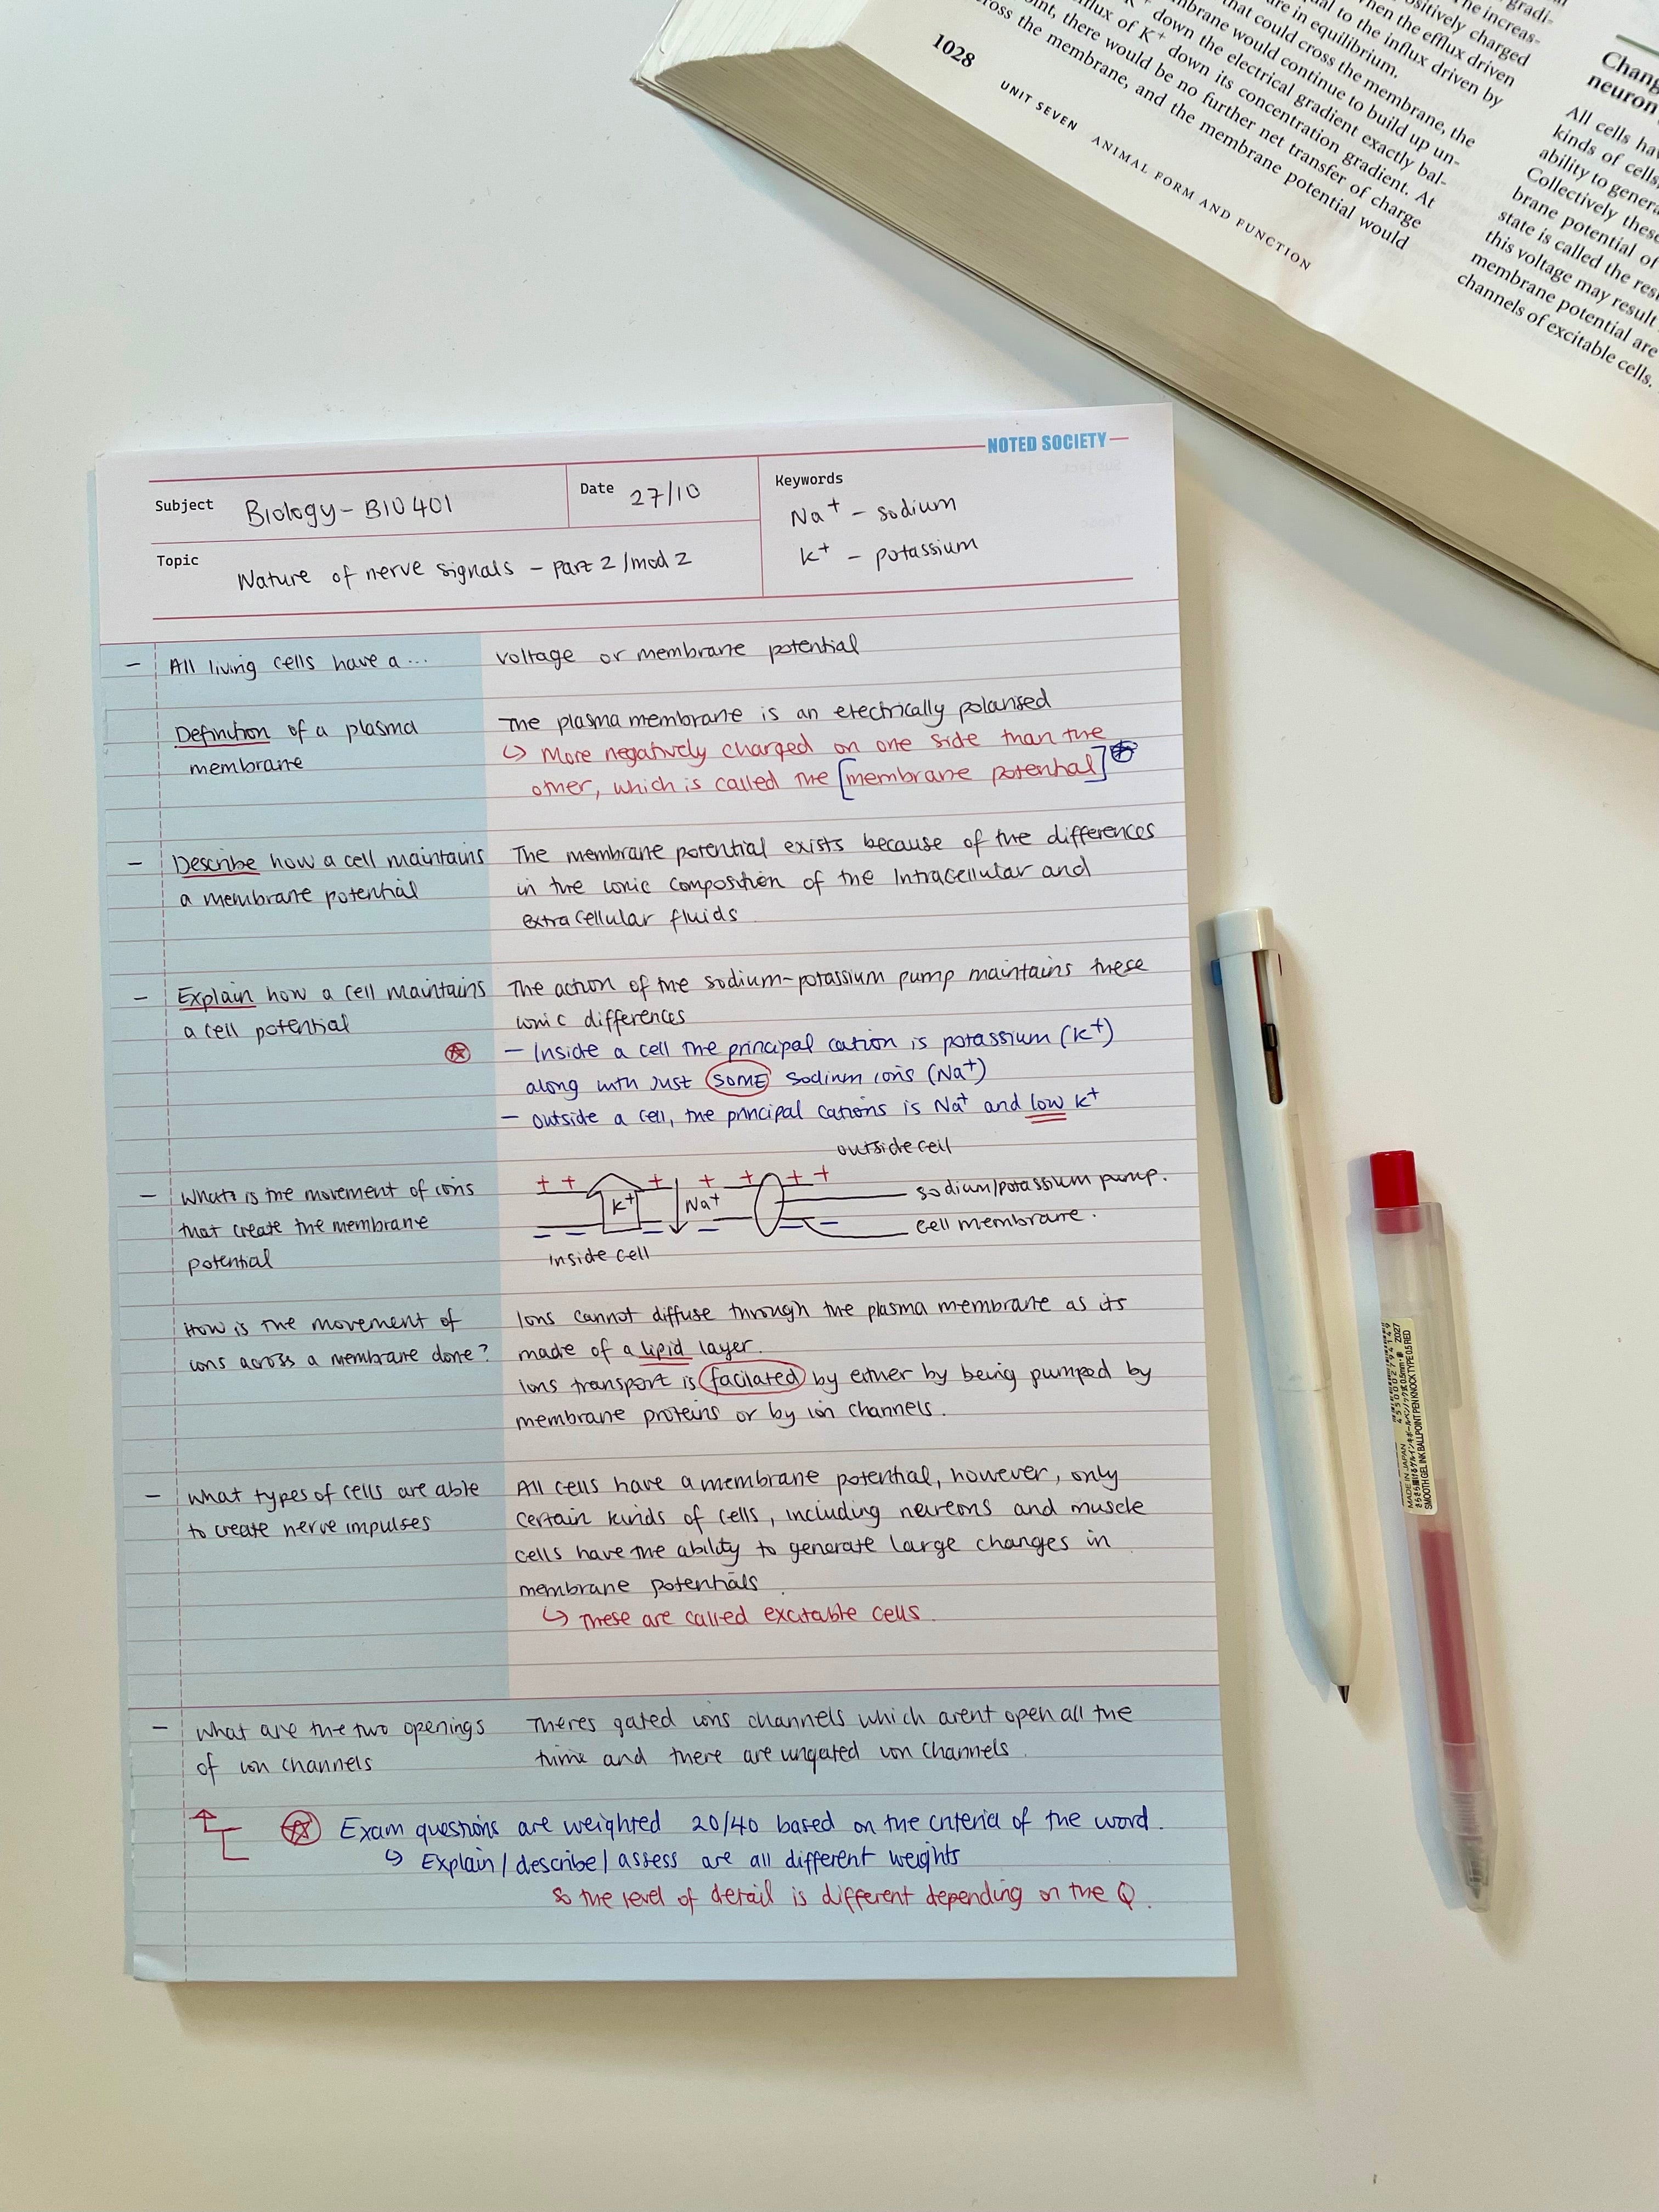 The increas-
ositively charged gradi-
hen the efflux driven
ual to the influx driven by
are in equilibrium.
that could cross the membrane, the
mbrane would continue to build up un-
K+ down the electrical gradient exactly bal-
flux of K+ down its concentration gradient. At
oint, there would be no further net transfer of charge
cross the membrane, and the membrane potential would
1028 UNIT SEVEN ANIMAL FORM AND FUNCTION
Chang
neuron
All cells hav
kinds of cells,
ability to genera
Collectively these
brane potential of
state is called the rest
this voltage may result
membrane potential are
channels of excitable cells.
NOTED SOCIETY
Subject Biology - BIO 401
Date 27/10
Keywords
Na+ - sodium
K+ - potassium
Topic Nature of nerve signals - part 2 / mod 2
- All living cells have a ... voltage or membrane potential
Definition of a plasma The plasma membrane is an electrically polarised
↳ More negatively charged on one side than the
membrane other, which is called the [membrane potential]
- Describe how a cell maintains The membrane potential exists because of the differences
a membrane potential in the ionic composition of the intracellular and
extracellular fluids.
- Explain how a cell maintains The action of the sodium-potassium pump maintains these
a cell potential ionic differences
- Inside a cell the principal cation is potassium (K+)
along with just some sodium ions (Na+)
- outside a cell, the principal cations is Na+ and low K+
outside cell
+ + + + + + +
- What is the movement of ions K+ Na+ sodium/potassium pump.
that create the membrane cell membrane.
potential inside cell
How is the movement of Ions cannot diffuse through the plasma membrane as its
ions across a membrane done? made of a lipid layer.
Ions transport is facilated by either by being pumped by
membrane proteins or by ion channels.
- what types of cells are able All cells have a membrane potential, however, only
to create nerve impulses certain kinds of cells, including neureons and muscle
cells have the ability to generate large changes in
membrane potentials.
↳ These are called excitable cells.
- What are the two openings Theres gated ions channels which arent open all the
of ion channels time and there are ungated ion channels.
Exam questions are weighted 20/40 based on the criteria of the word.
↳ Explain / describe / assess are all different weights
so the level of detail is different depending on the Q.
MADE IN JAPAN
SMOOTH GEL INK BALLPOINT PEN KNOCK TYPE 0.5 RED